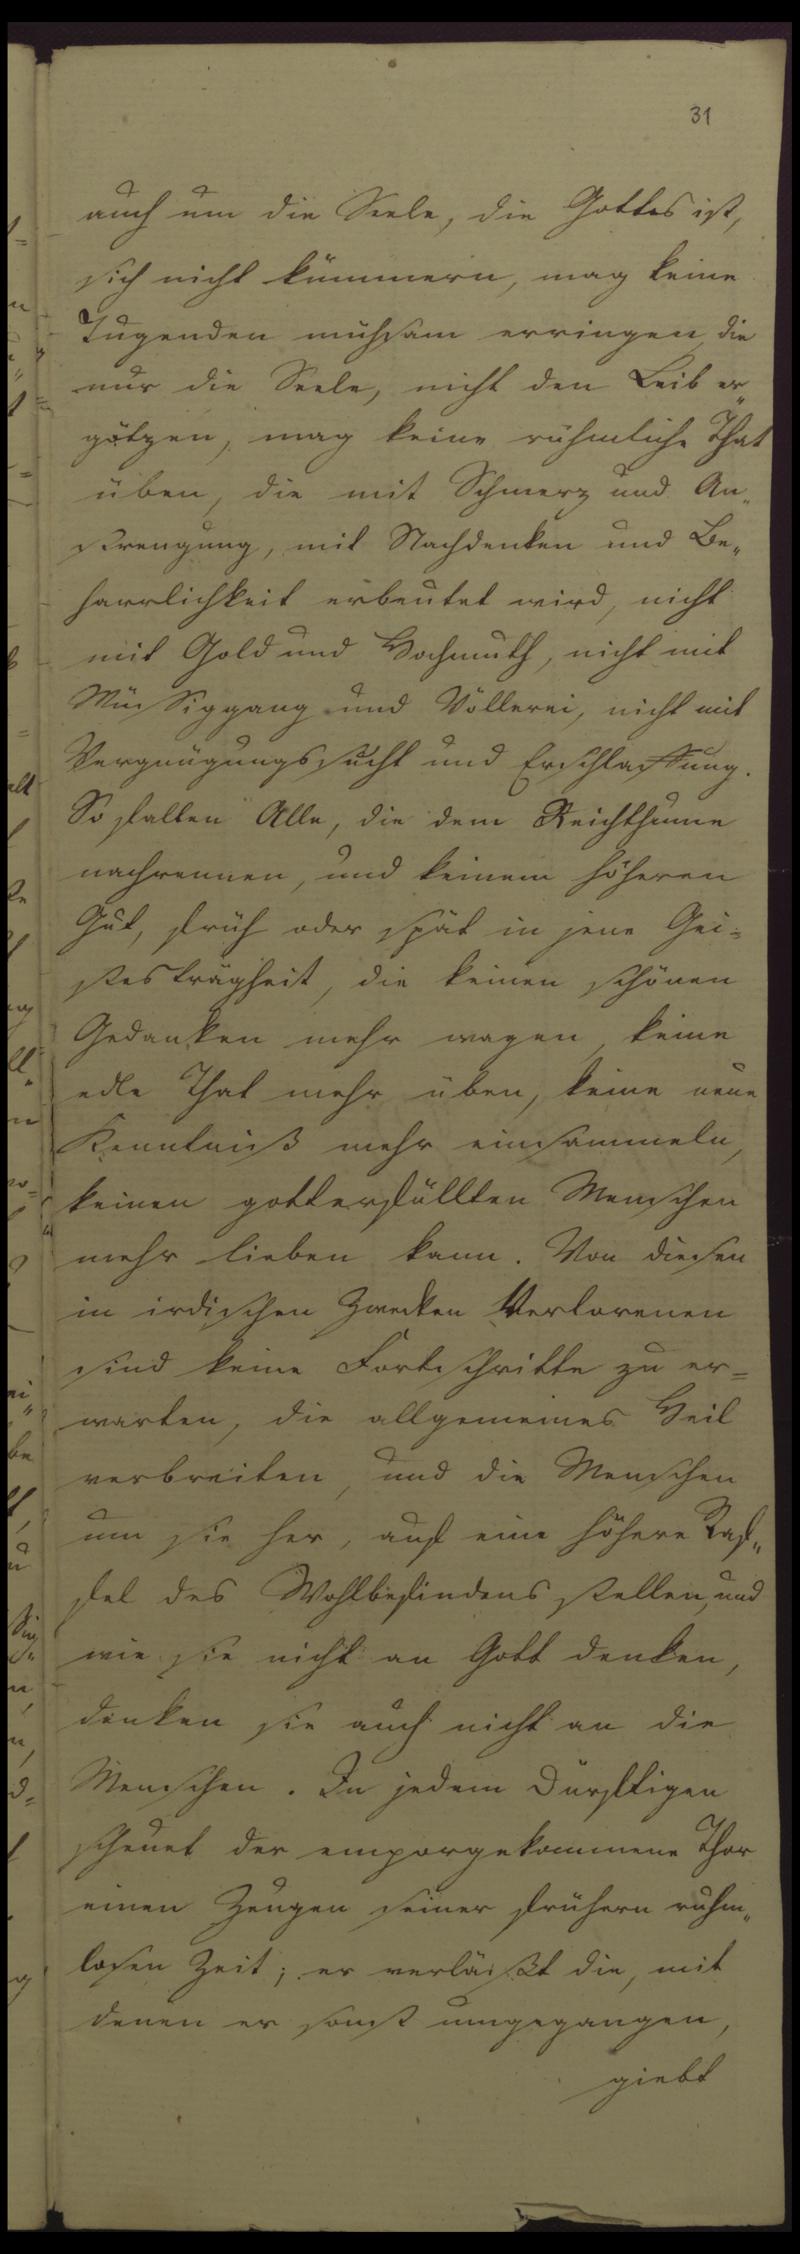 31
auch um die Seele, die Gottes ist,
sich nicht kümmern, mag keine
Tugenden mühsam erringen, die
nur die Seele, nicht den Leib er„
götzen, mag keine rühmliche That
üben, die mit Schmerz und An„
strengung, mit Nachdenken und Be„
harrlichkeit erbeutet wird, nicht
mit Gold und Hochmuth, nicht mit
Müssiggang und Völlerei, nicht mit
Vergnügungssucht und Erschlaffung.
So fallen Alle, die dem Reichthume
nachrennen, und keinem höheren
Gut, früh oder spät in jene Gei=
stesträgheit, die keinen schönen
Gedanken mehr wagen, keine
edle That mehr üben, keine neue
Kenntniß mehr einsammeln,
keinen gotterfüllten Menschen
mehr lieben kann. Von diesen
in irdischen Zwecken Verlorenen
sind keine Fortschritte zu er=
warten, die allgemeines Heil
verbreiten, und die Menschen
um sie her, auf eine höhere Staf„
fel des Wohlbefindens stellen, und
wie sie nicht an Gott denken,
denken sie auch nicht an die
Menschen. In jedem Dürftigen
scheuet der emporgekommene Thor
einen Zeugen seiner frühern ruhm„
losen Zeit; er verläßt die, mit
denen er sonst umgegangen,
giebt